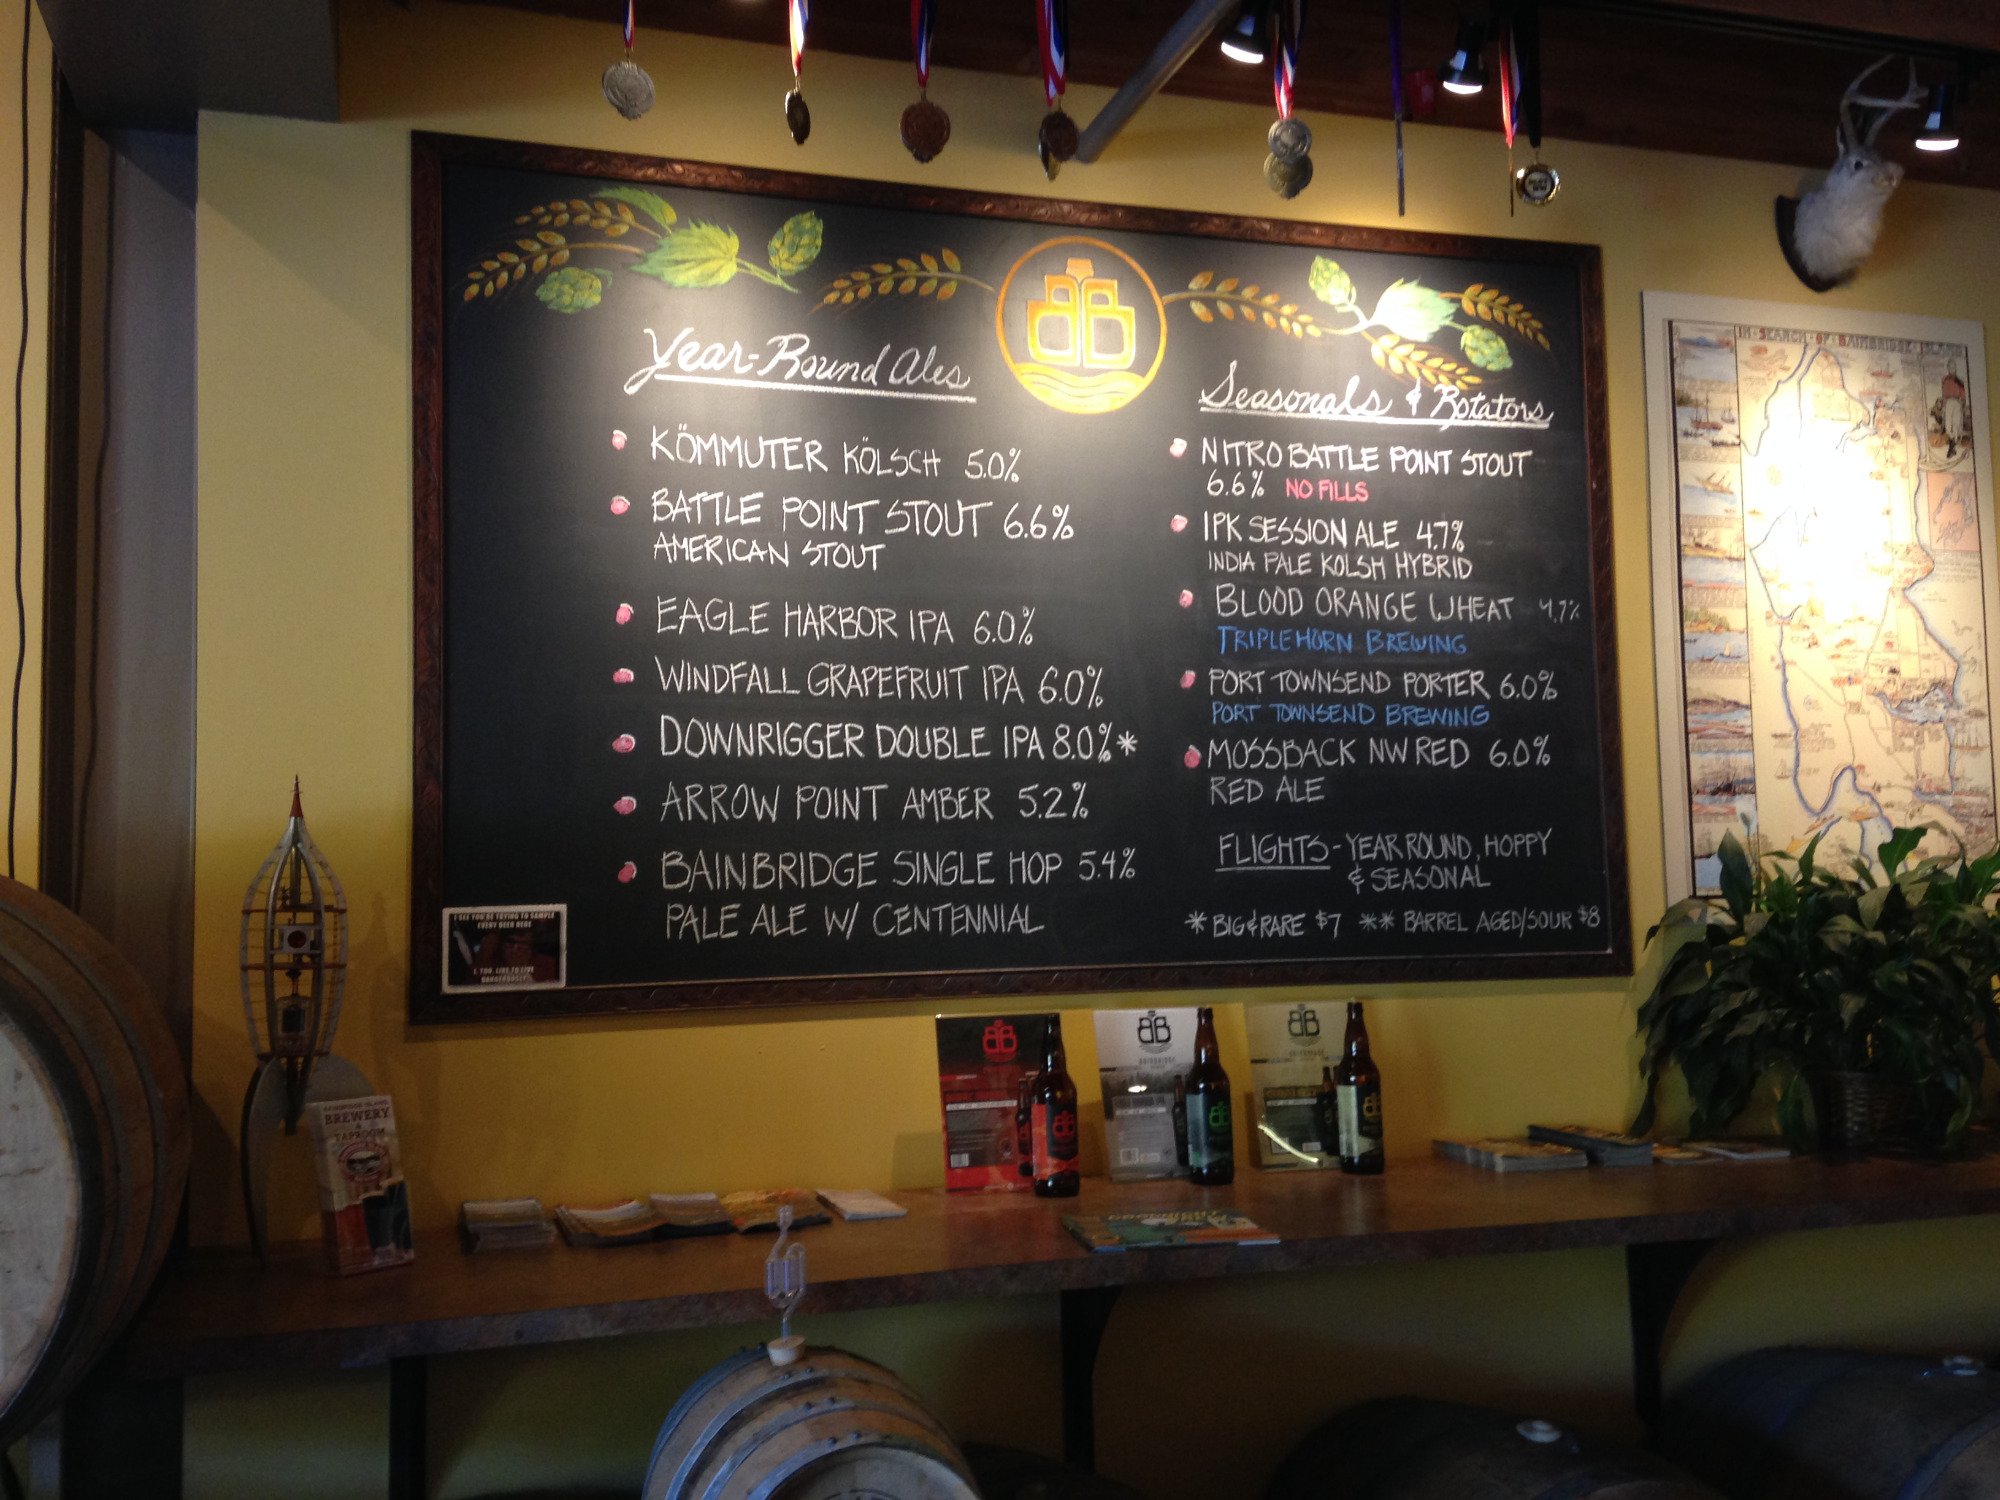 Year-Round Ales
KÖMMUTER KÖLSCH 5.0%
BATTLE POINT STOUT 6.6%
AMERICAN STOUT
EAGLE HARBOR IPA 6.0%
WINDFALL GRAPEFRUIT IPA 6.0%
DOWNRIGGER DOUBLE IPA 8.0%*
ARROW POINT AMBER 5.2%
BAINBRIDGE SINGLE HOP 5.4%
PALE ALE W/ CENTENNIAL
Seasonals & Rotators
NITRO BATTLE POINT STOUT
6.6% NO FILLS
IPK SESSION ALE 4.7%
INDIA PALE KOLSH HYBRID
BLOOD ORANGE WHEAT 4.7%
TRIPLEHORN BREWING
PORT TOWNSEND PORTER 6.0%
PORT TOWNSEND BREWING
MOSSBACK NW RED 6.0%
RED ALE
FLIGHTS - YEAR ROUND, HOPPY
& SEASONAL
* BIG & RARE $7 ** BARREL AGED/SOUR $8
I SEE YOU'RE TRYING TO SAMPLE
EVERY BEER HERE
I, TOO, LIKE TO LIVE
DANGEROUSLY
IN SEARCH OF BAINBRIDGE ISLAND
BREWERY
&
TAPROOM
BAINBRIDGE